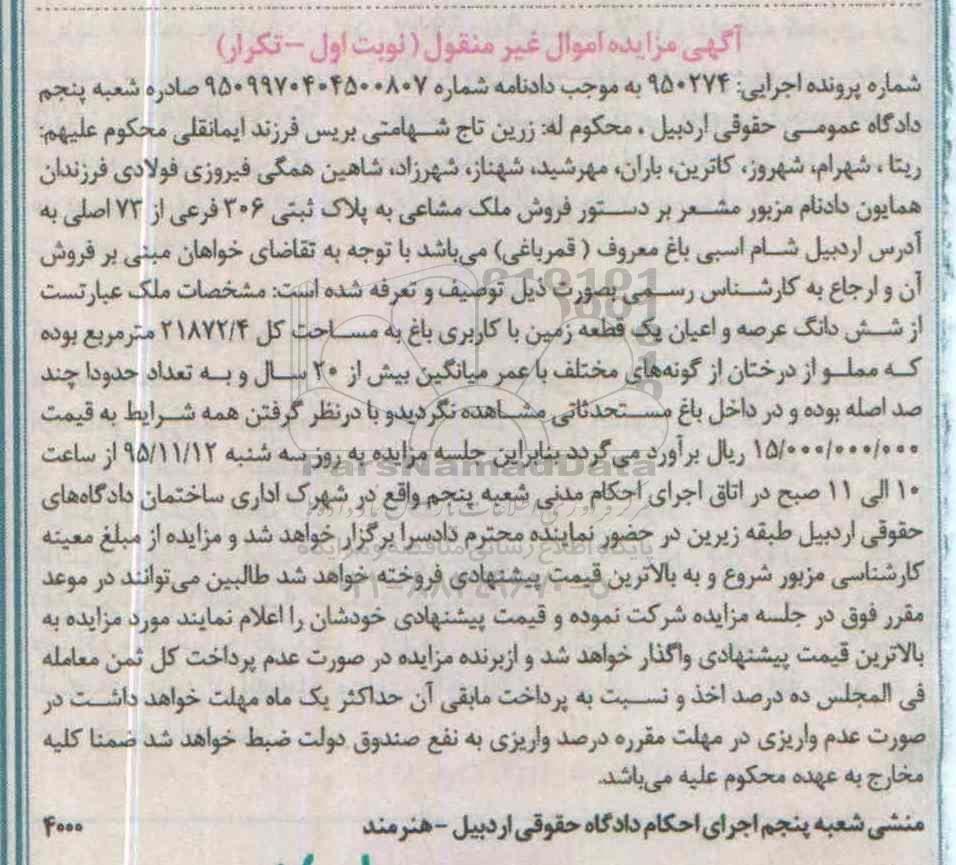 آگهی مزایده اموال غیر منقول (نوبت اول –تکرار)
شماره پرونده اجرایی: ۹۵۰۲۷۴ به موجب دادنامه شماره ۹۵۰۹۹۷۰۴۰۴۵۰۰۸۰۷ صادره شعبه پنجم
دادگاه عمومی حقوقی اردبیل ، محکوم له: زرین تاج شهامتی بریس فرزند ایمانقلی محکوم علیهم:
ریتا ، شهرام، شهروز، کاترین، باران، مهرشید، شهناز، شهرزاد، شاهین همگی فیروزی فولادی فرزندان
همایون دادنام مزبور مشعر بر دستور فروش ملک مشاعی به پلاک ثبتی ۳۰۶ فرعی از ۷۳ اصلی به
آدرس اردبیل شام اسبی باغ معروف ( قمرباغی) می‌باشد با توجه به تقاضای خواهان مبنی بر فروش
آن و ارجاع به کارشناس رسمی بصورت ذیل توصیف و تعرفه شده است: مشخصات ملک عبارتست
از شش دانگ عرصه و اعیان یک قطعه زمین با کاربری باغ به مساحت کل ۲۱۸۷۲/۴ مترمربع بوده
که مملو از درختان از گونه‌های مختلف با عمر میانگین بیش از ۲۰ سال و به تعداد حدودا چند
صد اصله بوده و در داخل باغ مستحدثاتی مشاهده نگردیدو با درنظر گرفتن همه شرایط به قیمت
۱۵/۰۰۰/۰۰۰/۰۰۰ ریال برآورد می‌گردد بنابراین جلسه مزایده به روز سه شنبه ۹۵/۱۱/۱۲ از ساعت
۱۰ الی ۱۱ صبح در اتاق اجرای احکام مدنی شعبه پنجم واقع در شهرک اداری ساختمان دادگاه‌های
حقوقی اردبیل طبقه زیرین در حضور نماینده محترم دادسرا برگزار خواهد شد و مزایده از مبلغ معینه
کارشناسی مزبور شروع و به بالاترین قیمت پیشنهادی فروخته خواهد شد طالبین می‌توانند در موعد
مقرر فوق در جلسه مزایده شرکت نموده و قیمت پیشنهادی خودشان را اعلام نمایند مورد مزایده به
بالاترین قیمت پیشنهادی واگذار خواهد شد و ازبرنده مزایده در صورت عدم پرداخت کل ثمن معامله
فی المجلس ده درصد اخذ و نسبت به پرداخت مابقی آن حداکثر یک ماه مهلت خواهد داشت در
صورت عدم واریزی در مهلت مقرره درصد واریزی به نفع صندوق دولت ضبط خواهد شد ضمنا کلیه
مخارج به عهده محکوم علیه می‌باشد.
منشی شعبه پنجم اجرای احکام دادگاه حقوقی اردبیل –هنرمند ۴۰۰۰
ParsNamadData
پایگاه اطلاع رسانی مناقصه و مزایده